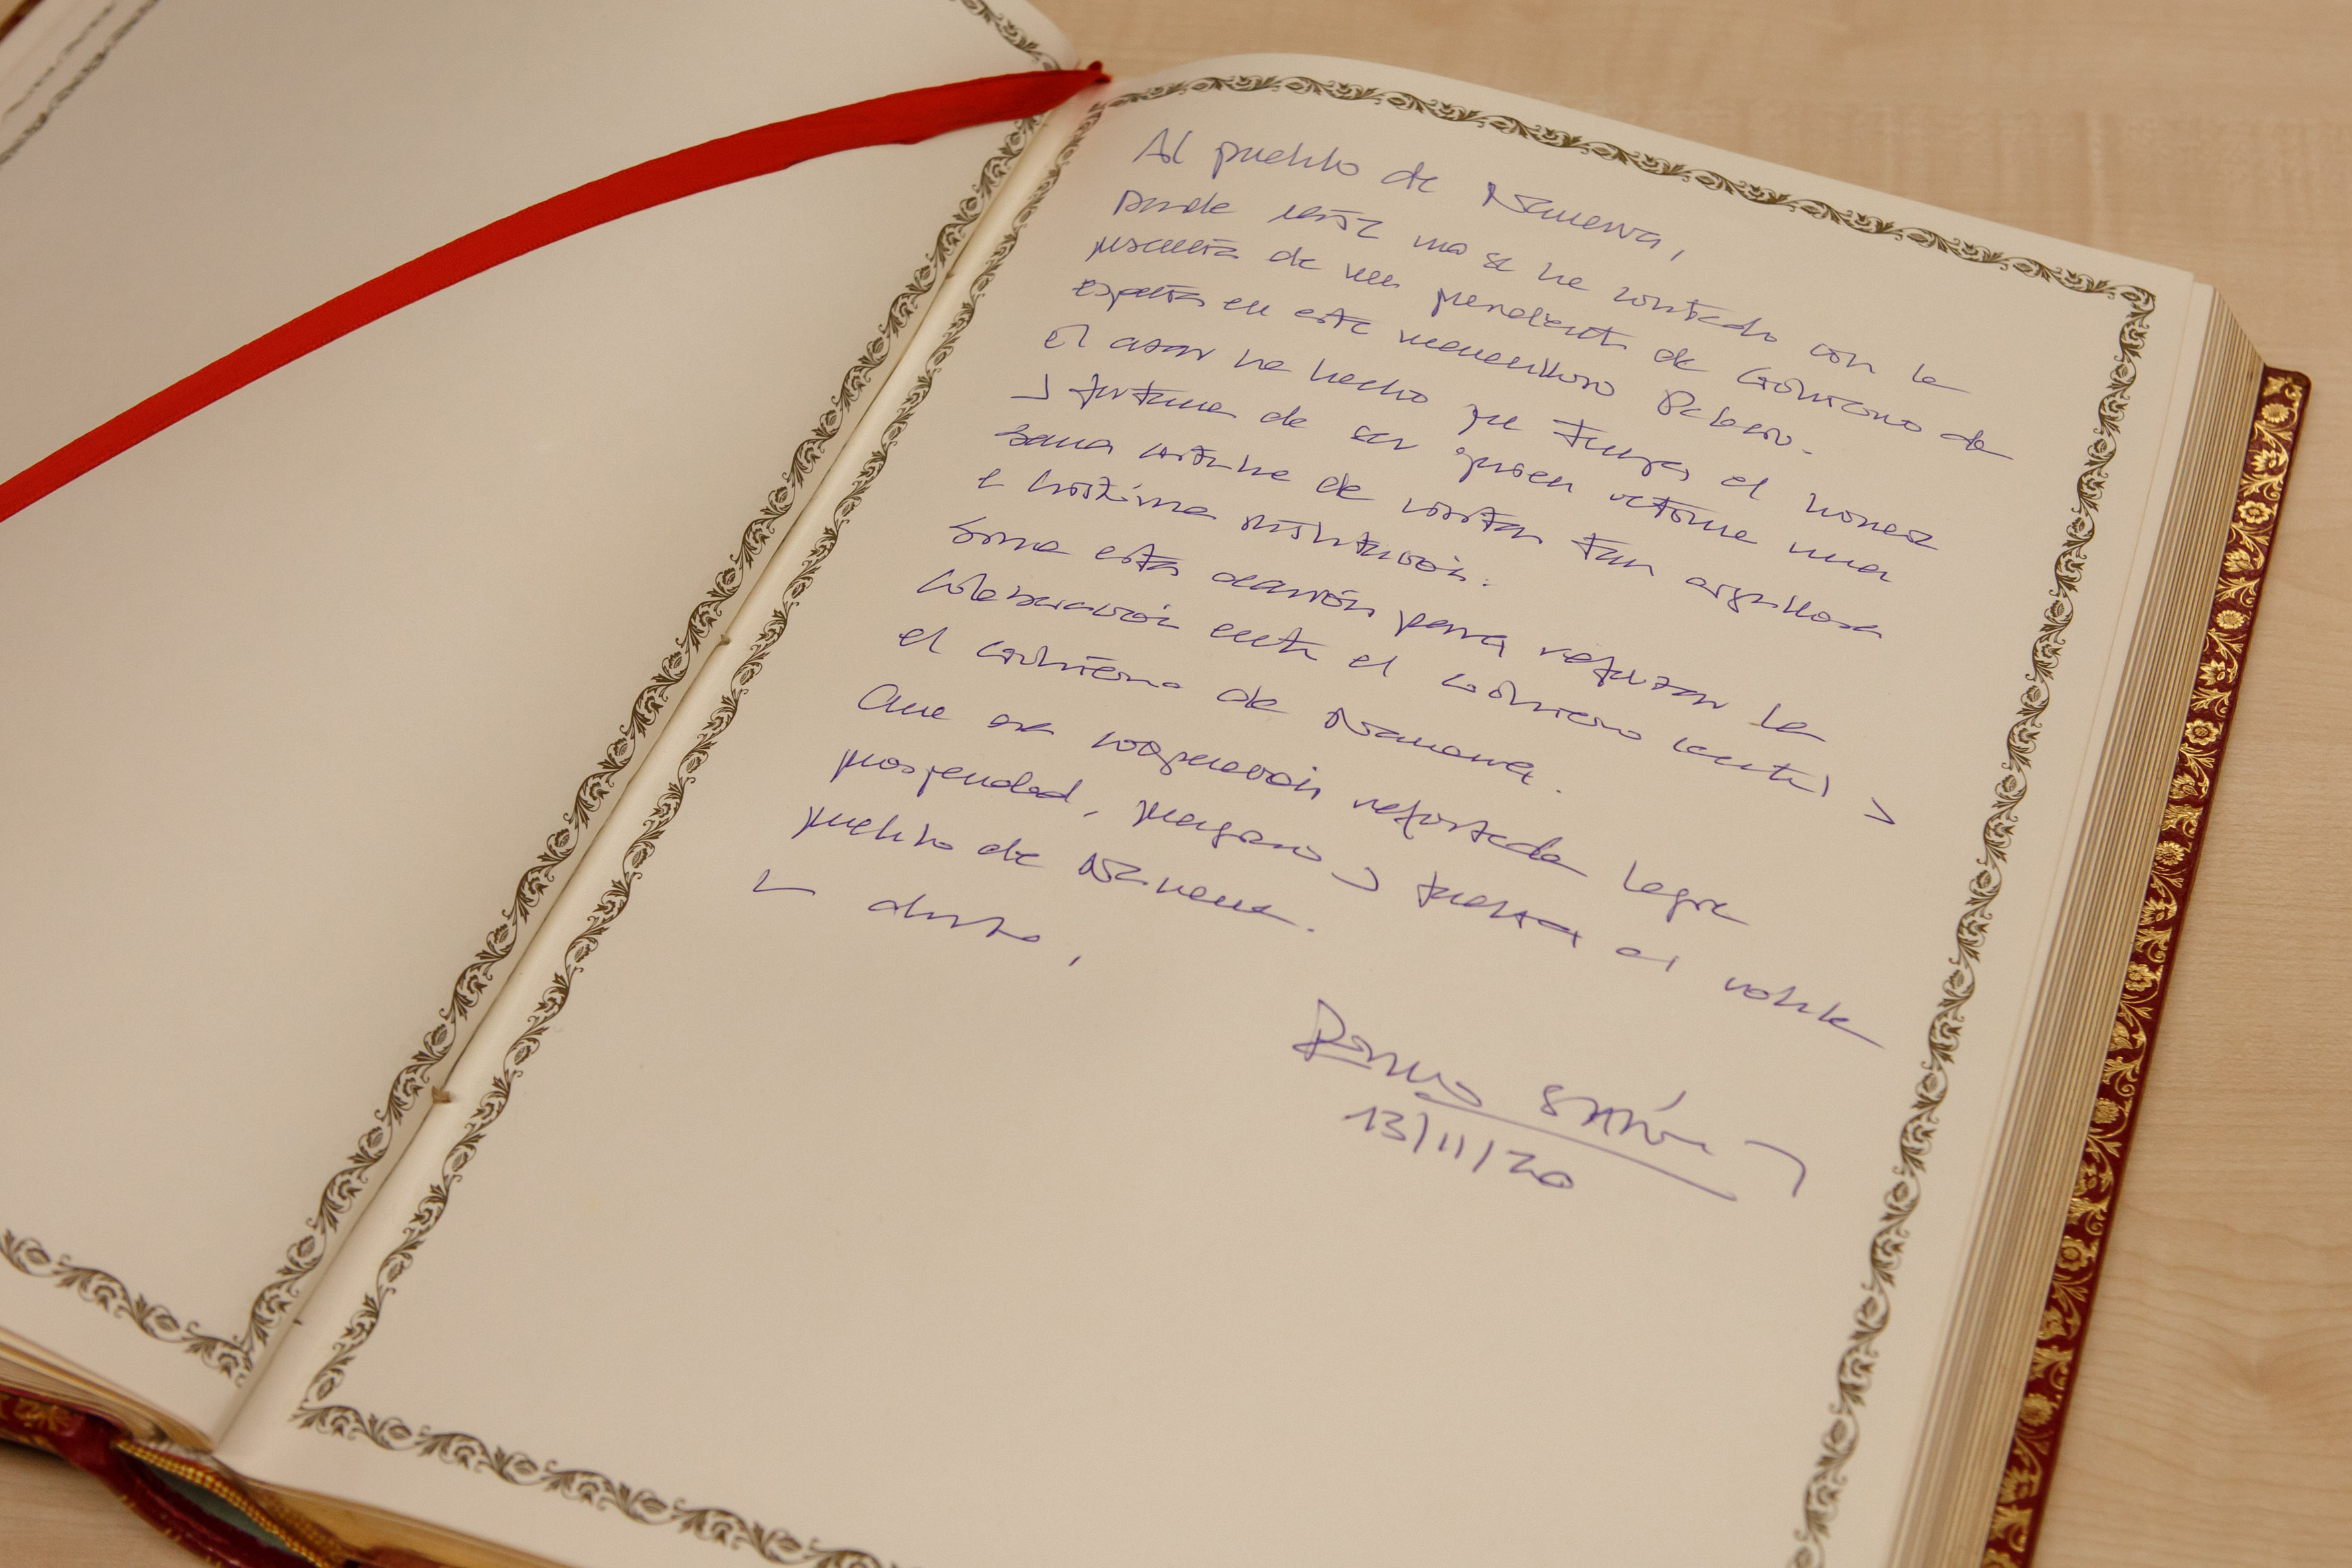 Al pueblo de Navarra,
Desde 1952 no se ha contado con la
presencia de un presidente de Gobierno de
España en este maravilloso Palacio.
El azar ha hecho que tenga el honor
y fortuna de ser quien retome una
sana costumbre de visitar tan orgullosa
e histórica institución.
Sirva esta ocasión para reforzar la
colaboración entre el Gobierno central y
el Gobierno de Navarra.
Que esa cooperación reforzada logre
prosperidad, progreso y fuerza al noble
pueblo de Navarra.
Un abrazo,
13/11/20